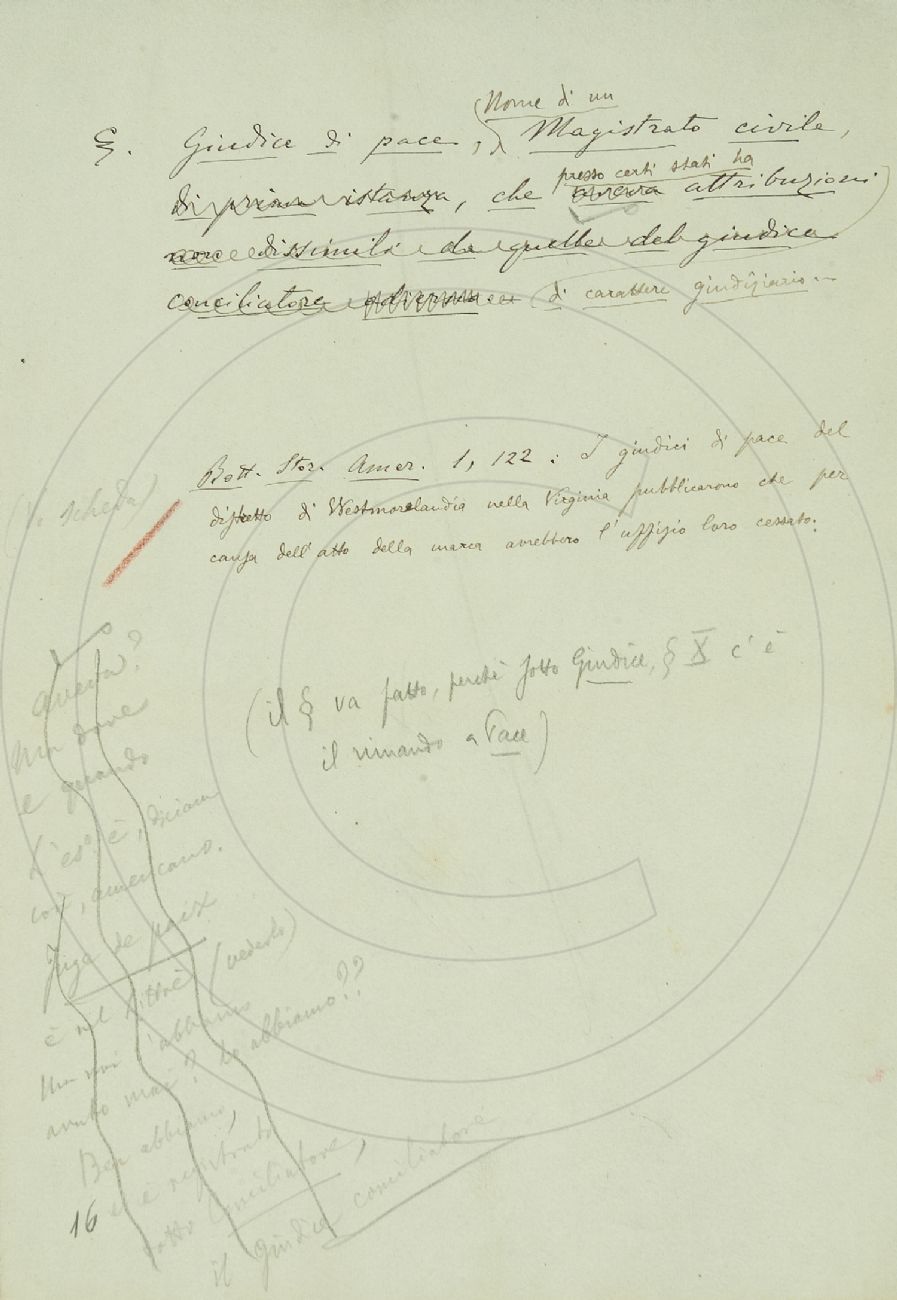 Nome di un
§. Giudice di pace, Magistrato civile,
presso certi stati ha
di prima istanza, che aveva attribuzioni
non dissimili da quelle del giudice
conciliatore odierno. di carattere giudiziario. –
Bott. Stor. Amer. 1, 122: I giudici di pace del
distretto di Westmorelandia nella Virginia pubblicarono che per
causa dell'atto della marca avrebbero l'uffizio loro cessato.
scheda)
(il § va fatto, perchè sotto Giudice, § X c'è
il rimando a Pace)
Questa?
Ma dove
e quando
L'es° è, diciam
così, americano.
Juge de paix
è nel Littré (vederlo)
Ma noi l'abbiamo
avuto mai? Lo abbiamo??
Ben abbiamo,
ed è registrato
sotto Conciliatore,
il Giudice conciliatore
16